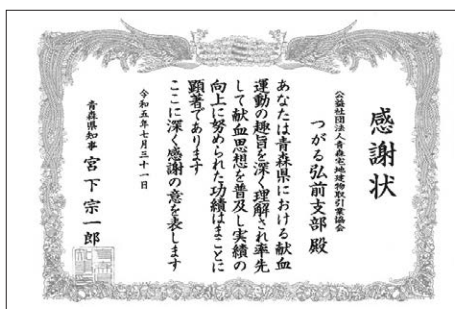 感謝状
公益社団法人青森宅地建物取引業協会
つがる弘前支部 殿
あなたは青森県における献血
運動の趣旨を深く理解され率先
して献血思想を普及し実績の
向上に努められた功績はまことに
顕著であります
ここに深く感謝の意を表します
令和五年七月三十一日
青森県知事 宮下宗一郎